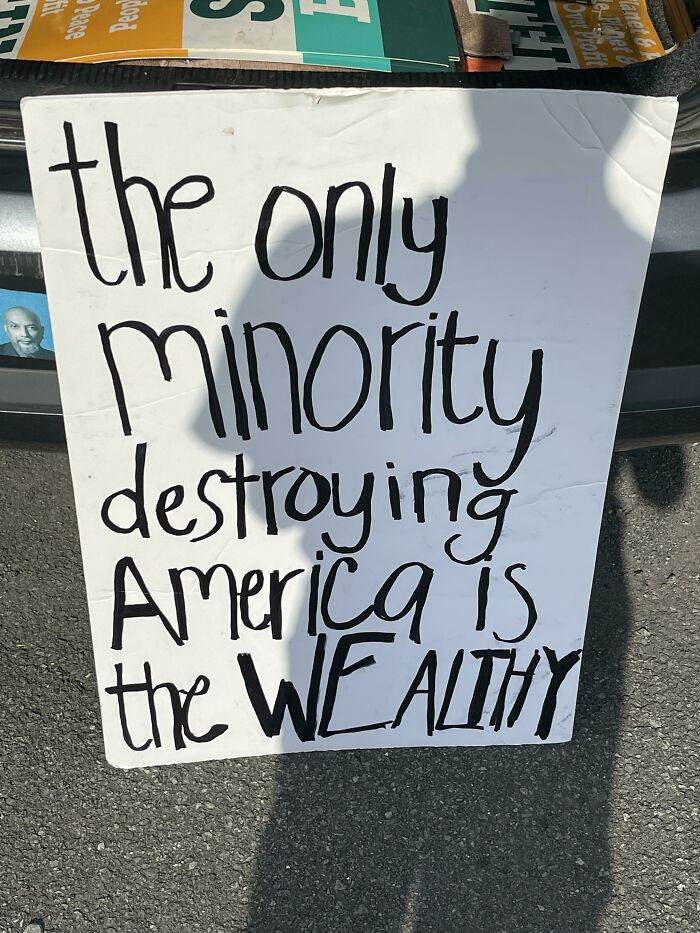 the only
minority
destroying
America is
the WEALTHY